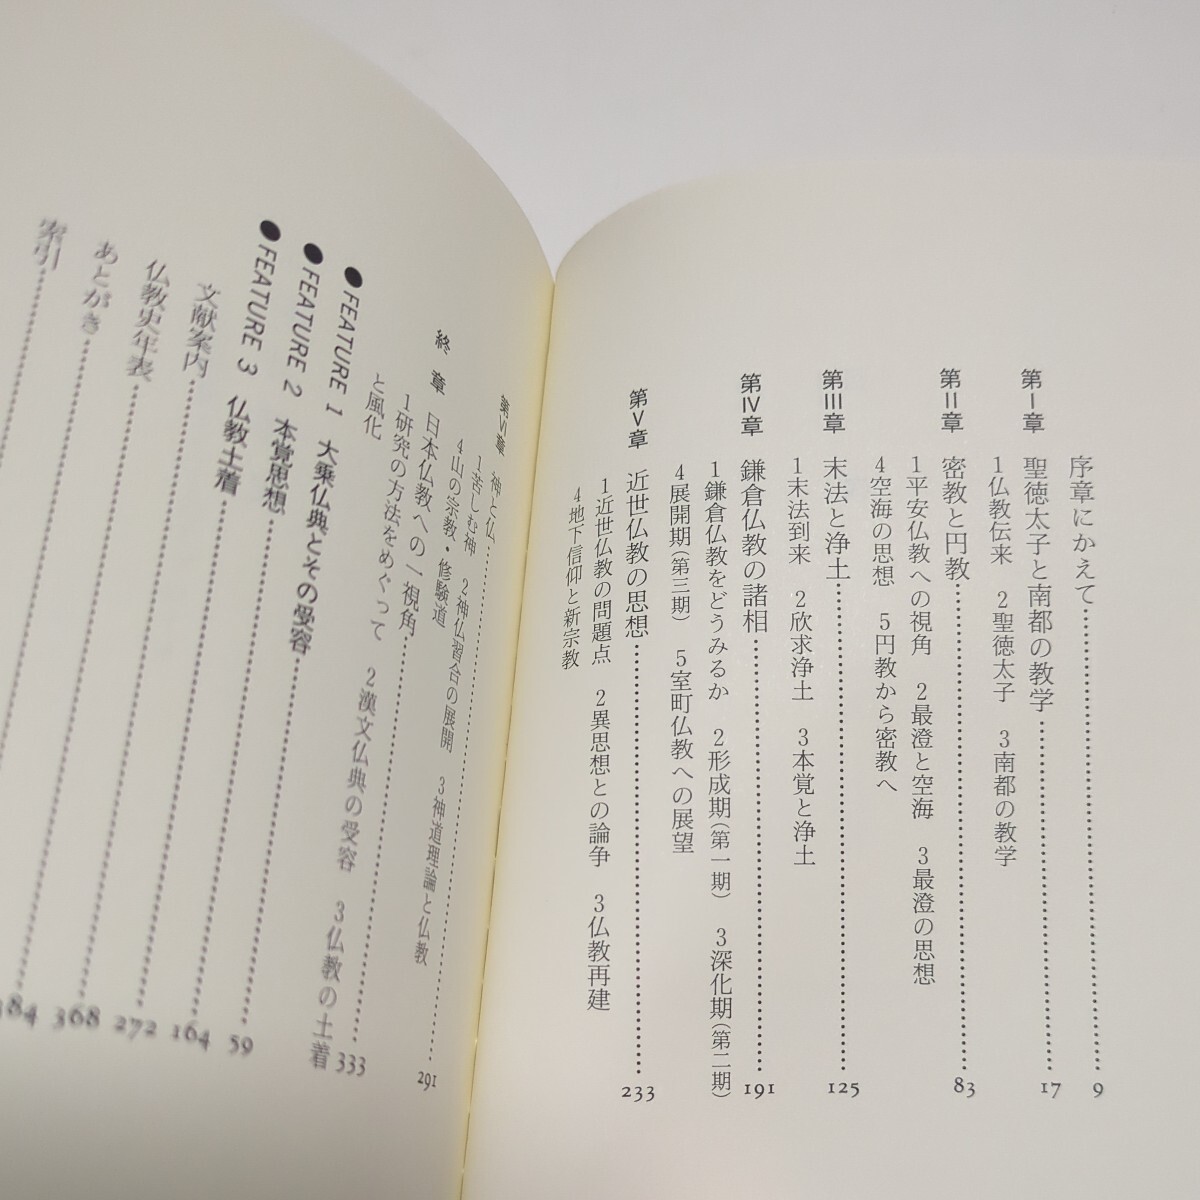 序章にかえて 9
第I章 聖徳太子と南都の教学 17
1仏教伝来 2聖徳太子 3南都の教学
第II章 密教と円教 83
1平安仏教への視角 2最澄と空海 3最澄の思想
4空海の思想 5円教から密教へ
第III章 末法と浄土 125
1末法到来 2欣求浄土 3本覚と浄土
第IV章 鎌倉仏教の諸相 191
1鎌倉仏教をどうみるか 2形成期(第一期) 3深化期(第二期)
4展開期(第三期) 5室町仏教への展望
第V章 近世仏教の思想 233
1近世仏教の問題点 2異思想との論争 3仏教再建
4地下信仰と新宗教
第VI章 神と仏 291
1苦しむ神 2神仏習合の展開 3神道理論と仏教
4山の宗教・修験道
終章 日本仏教への一視角 333
1研究の方法をめぐって 2漢文仏典の受容 3仏教の土着
と風化
●FEATURE 1 大乗仏典とその受容 59
●FEATURE 2 本覚思想 164
●FEATURE 3 仏教土着 272
文献案内 368
仏教史年表
あとがき
索引